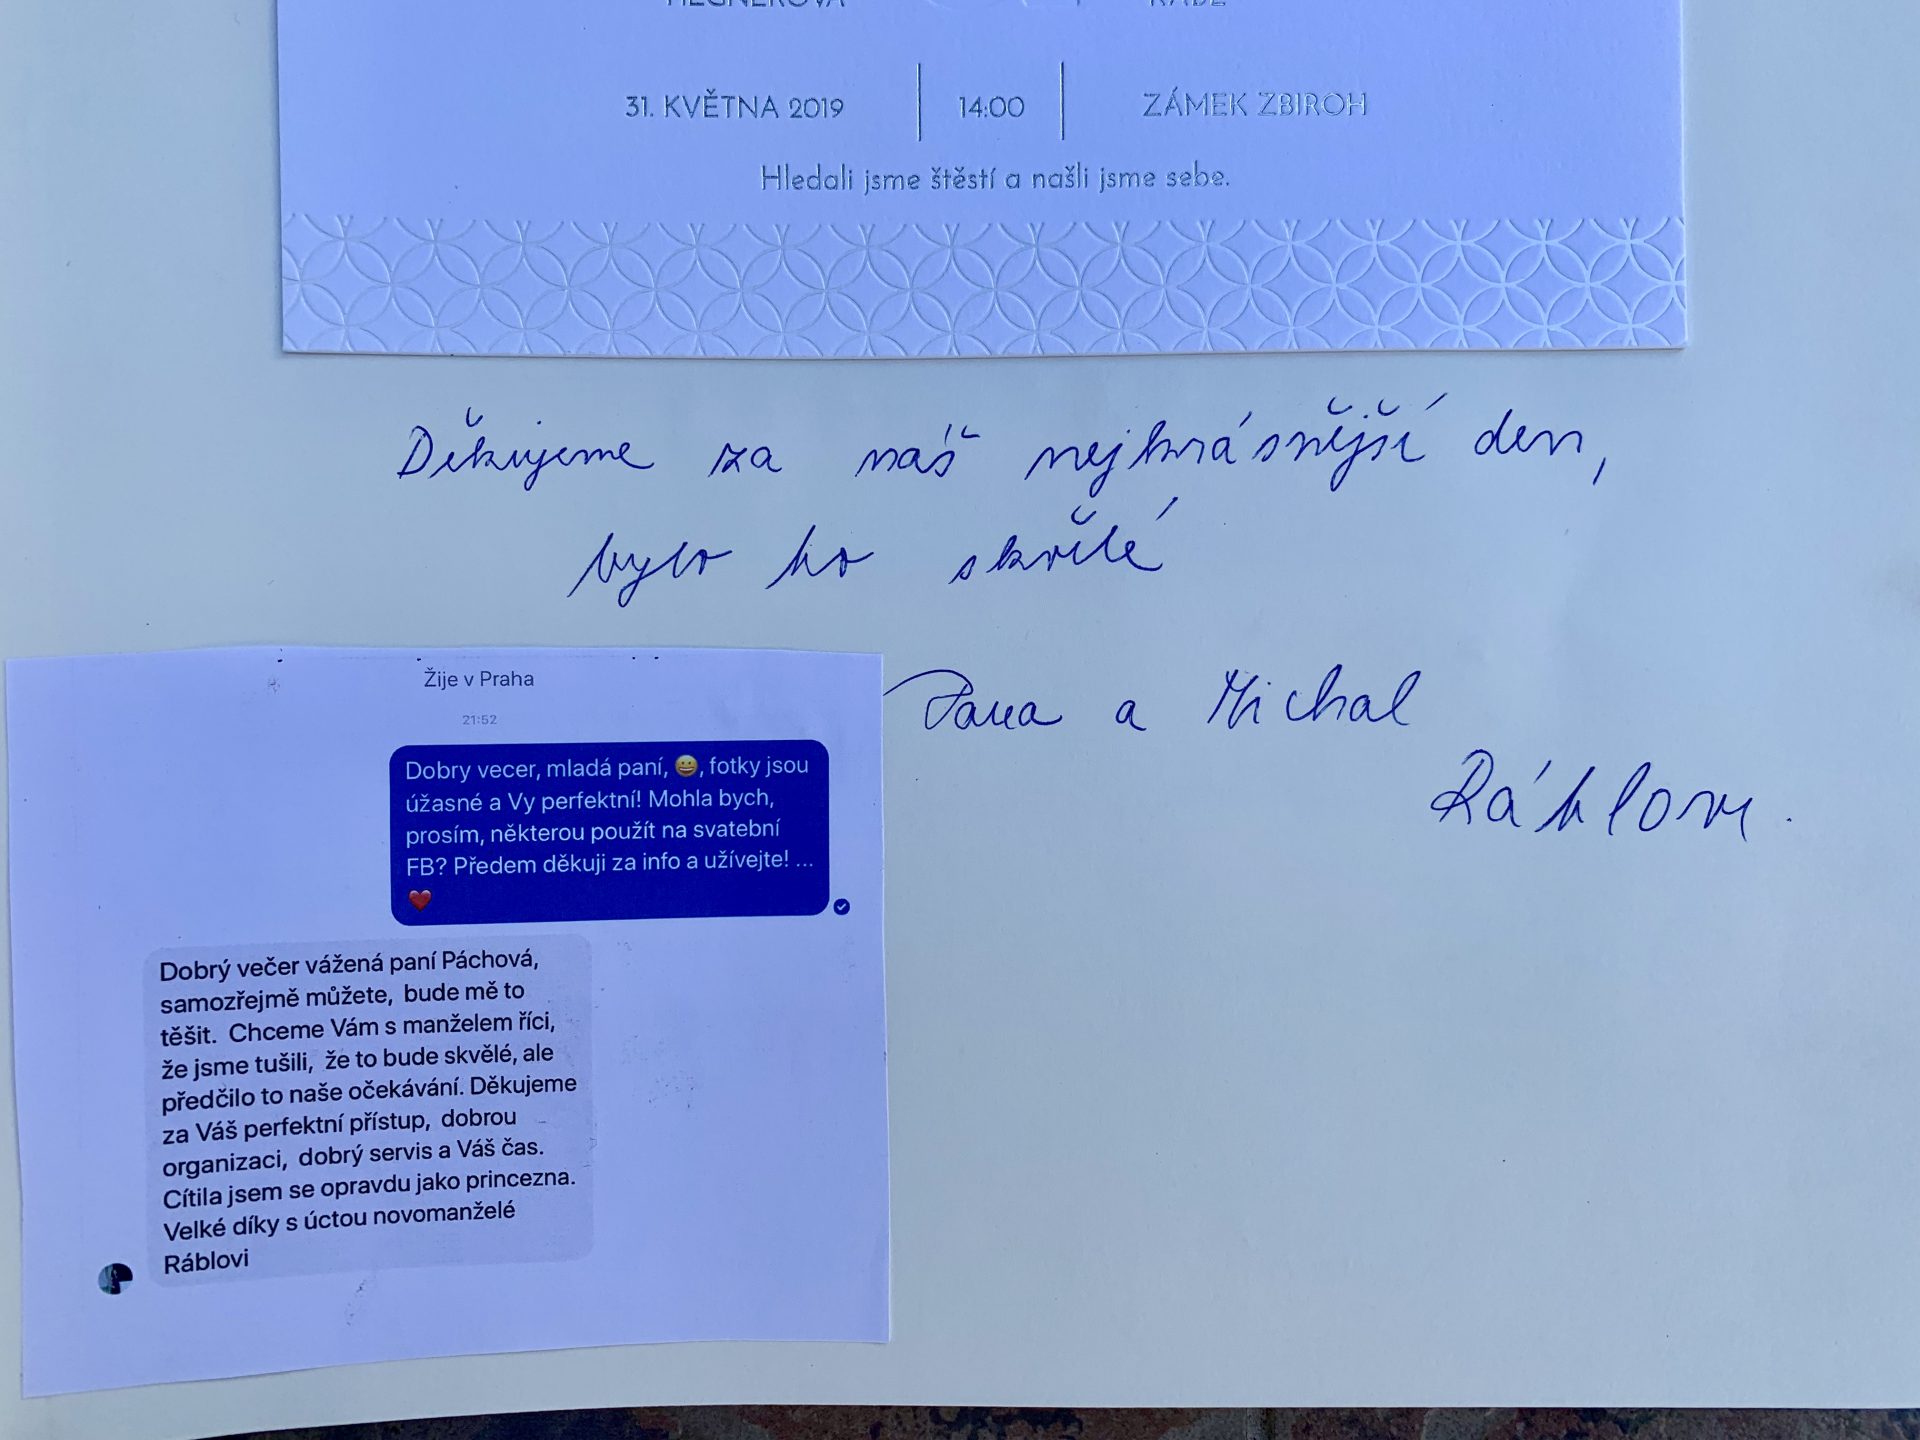 31. KVĚTNA 2019 14:00 ZÁMEK ZBIROH
Hledali jsme štěstí a našli jsme sebe.
Děkujeme za náš nejkrásnější den,
bylo to skvělé
Jana a Michal
Ráblovi.
Žije v Praha
21:52
Dobry vecer, mladá paní, 😀, fotky jsou
úžasné a Vy perfektní! Mohla bych,
prosím, některou použít na svatební
FB? Předem děkuji za info a užívejte! ...
❤️
Dobrý večer vážená paní Páchová,
samozřejmě můžete, bude mě to
těšit. Chceme Vám s manželem říci,
že jsme tušili, že to bude skvělé, ale
předčilo to naše očekávání. Děkujeme
za Váš perfektní přístup, dobrou
organizaci, dobrý servis a Váš čas.
Cítila jsem se opravdu jako princezna.
Velké díky s úctou novomanželé
Ráblovi